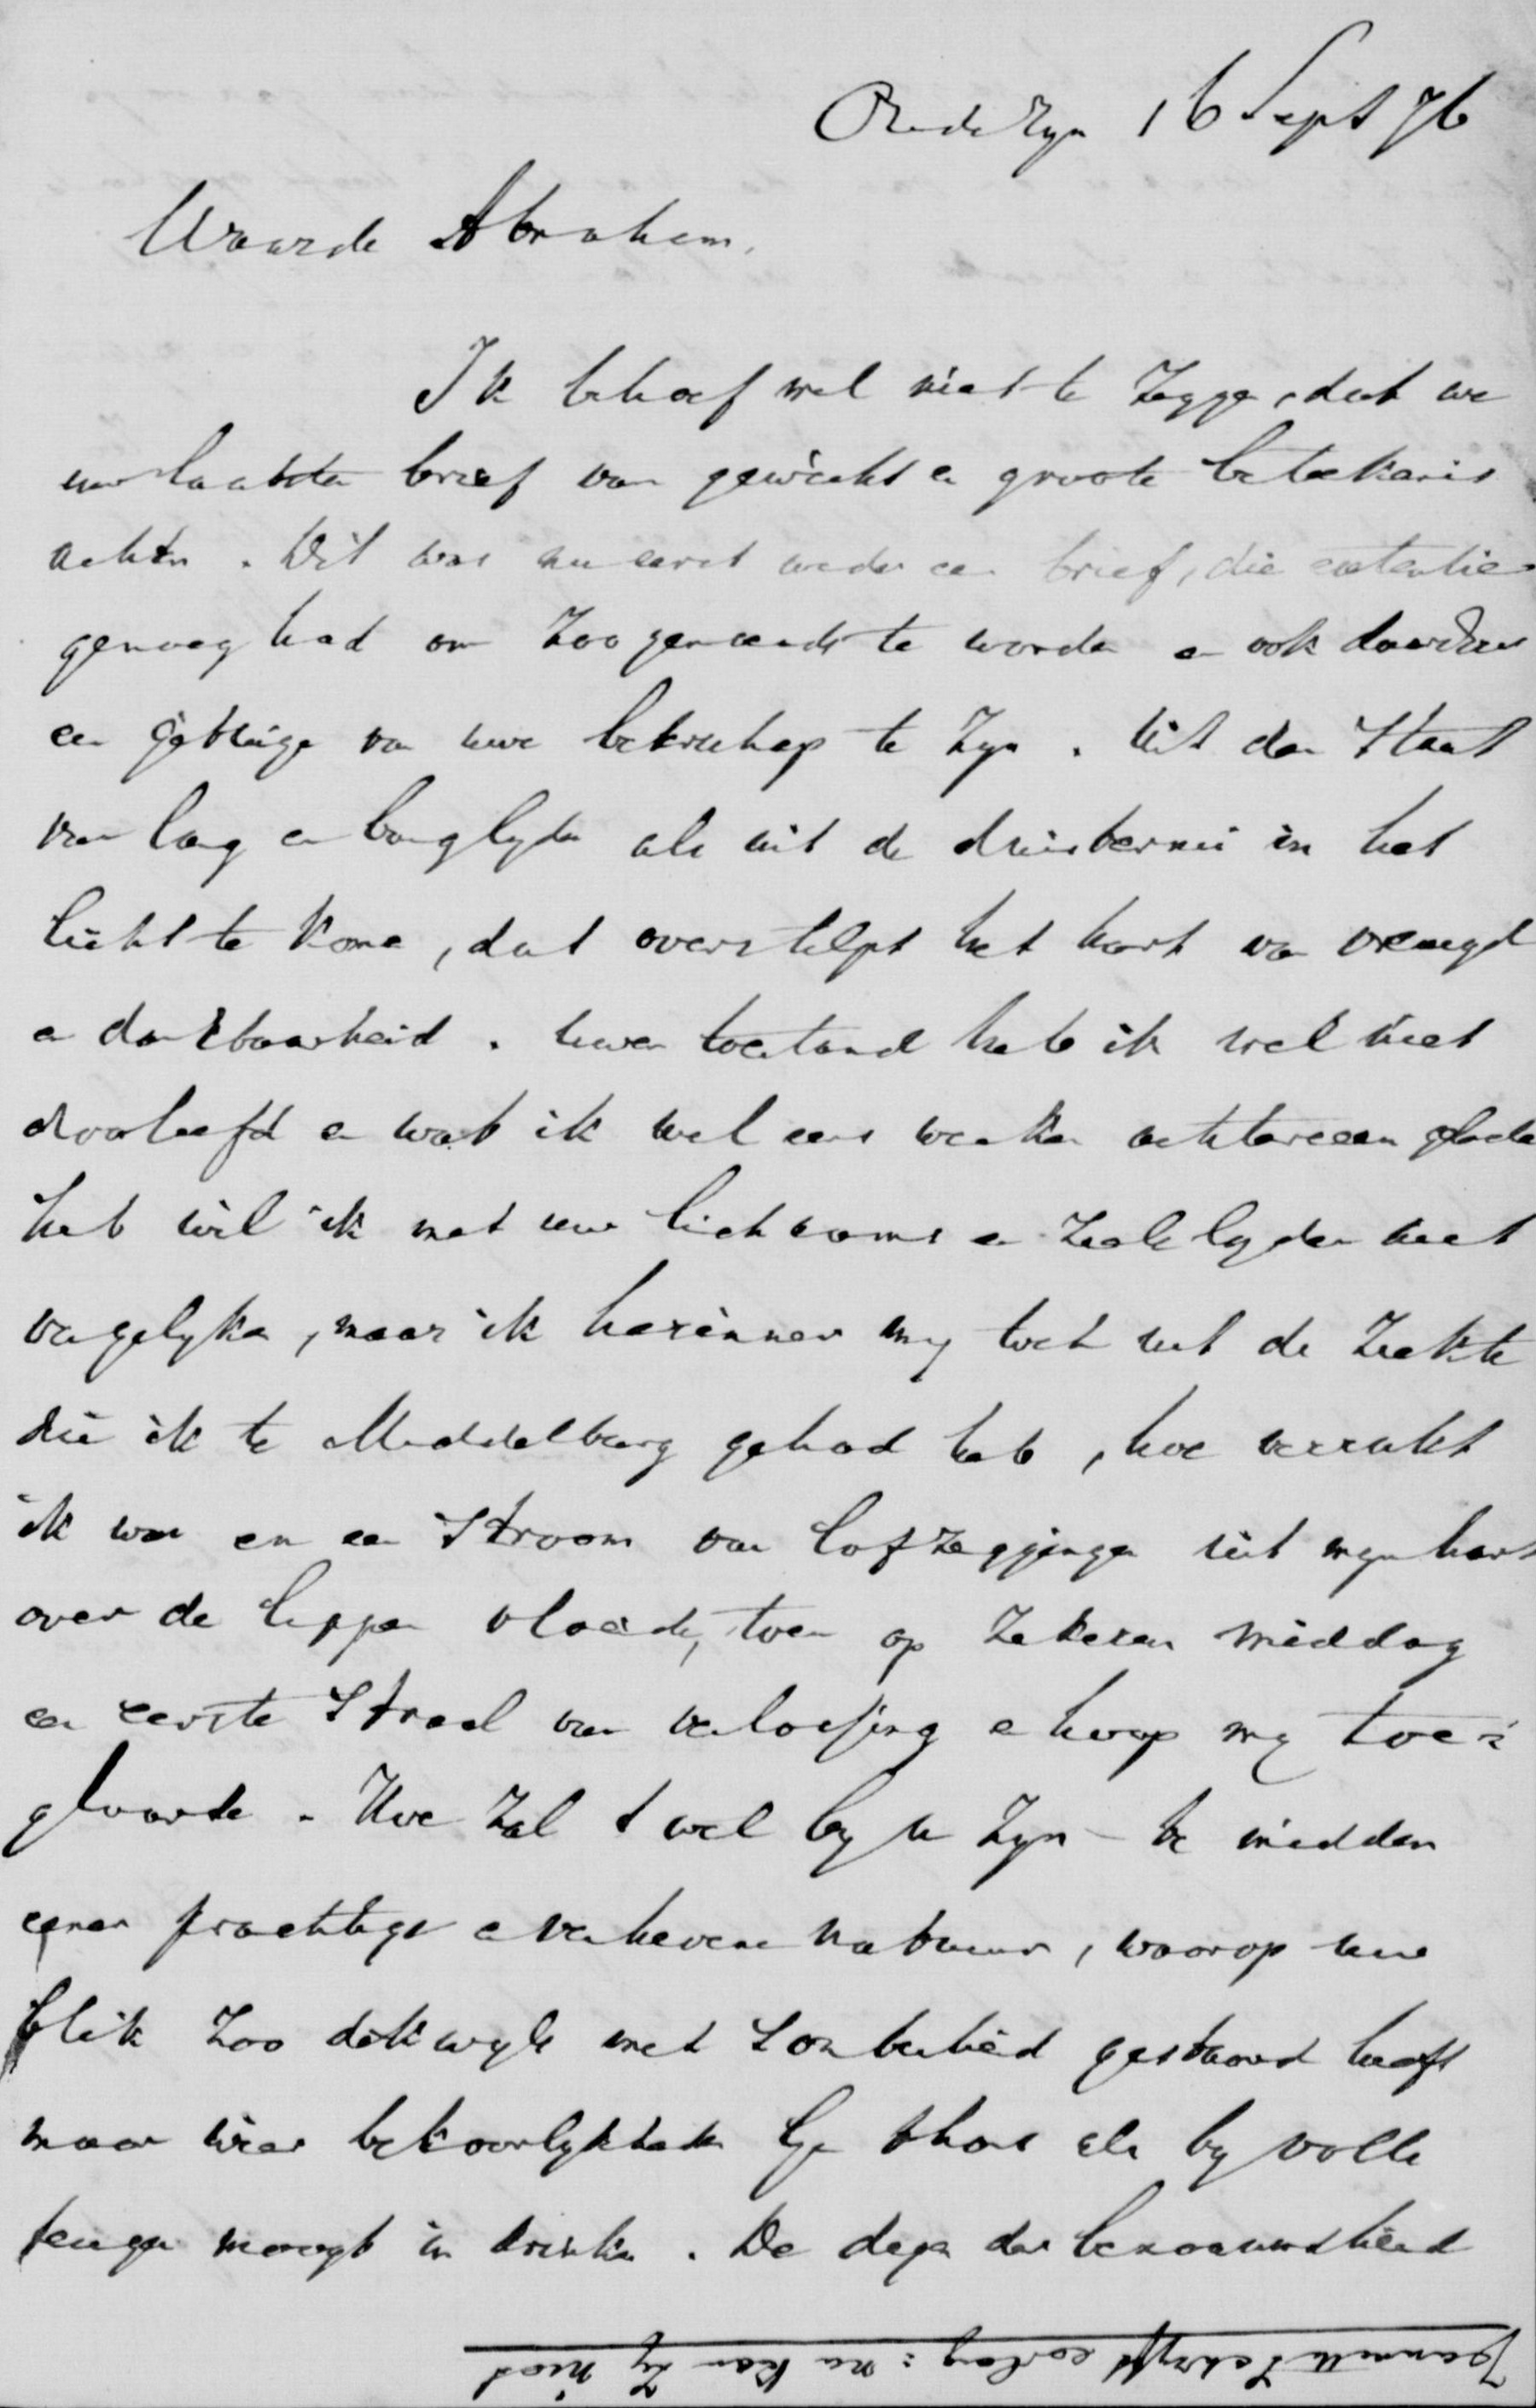 16 Sept 76
Waarde Abraham,
Ik behoef wel niet te zeggen, dat we
uw laatsten brief van gewicht en groote beteekenis
achten. Dit was nu eerst weder een brief, die
genoeg had om zoo genoemd te worden en ook daardoor
een getuige van uwe beterschap te zyn. Uit den staat
van lang en bang lyden als uit de duisternis in het
licht te komen, dat overstelpt het hart van vreugd
en dankbaarheid. Uwen toestand heb ik wel niet
doorleefd en wat ik wel eens weken achtereen geleden
heb wil ik met uw lichaams en zielelyden niet
vergelyken, maar ik herinner my toch uit de ziekte
die ik te Middelburg gehad heb, hoe verrukt
ik was en een stroom van lofzeggingen uit myn hart
over de lippen vloeide, toen op zekeren middag
een eerste straal van verlossing en hoop my toe=
gloorde. Hoe zal 't wel by u zyn - te midden
eener prachtige en verhevene natuur, waarop uw
blik zoo dikwyls met somberheid gestaard heeft
maar wier bekoorlykheden ge thans als by volle
teugen moogt in drinken. De dagen der benauwdheid
schryft eerlang: nu kan zy niet